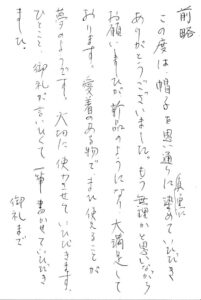 前略
この度は帽子を思い通りに真黒に染めていただき
ありがとうございました。もう無理かと思いながら
お願いしましたが新品のようになり、大満足して
おります。愛着のある物でまた使えることが
夢のようです。大切に使わさせていただきます。
ひとこと御礼が言いたくて一筆書かせていただき
ました。
御礼まで